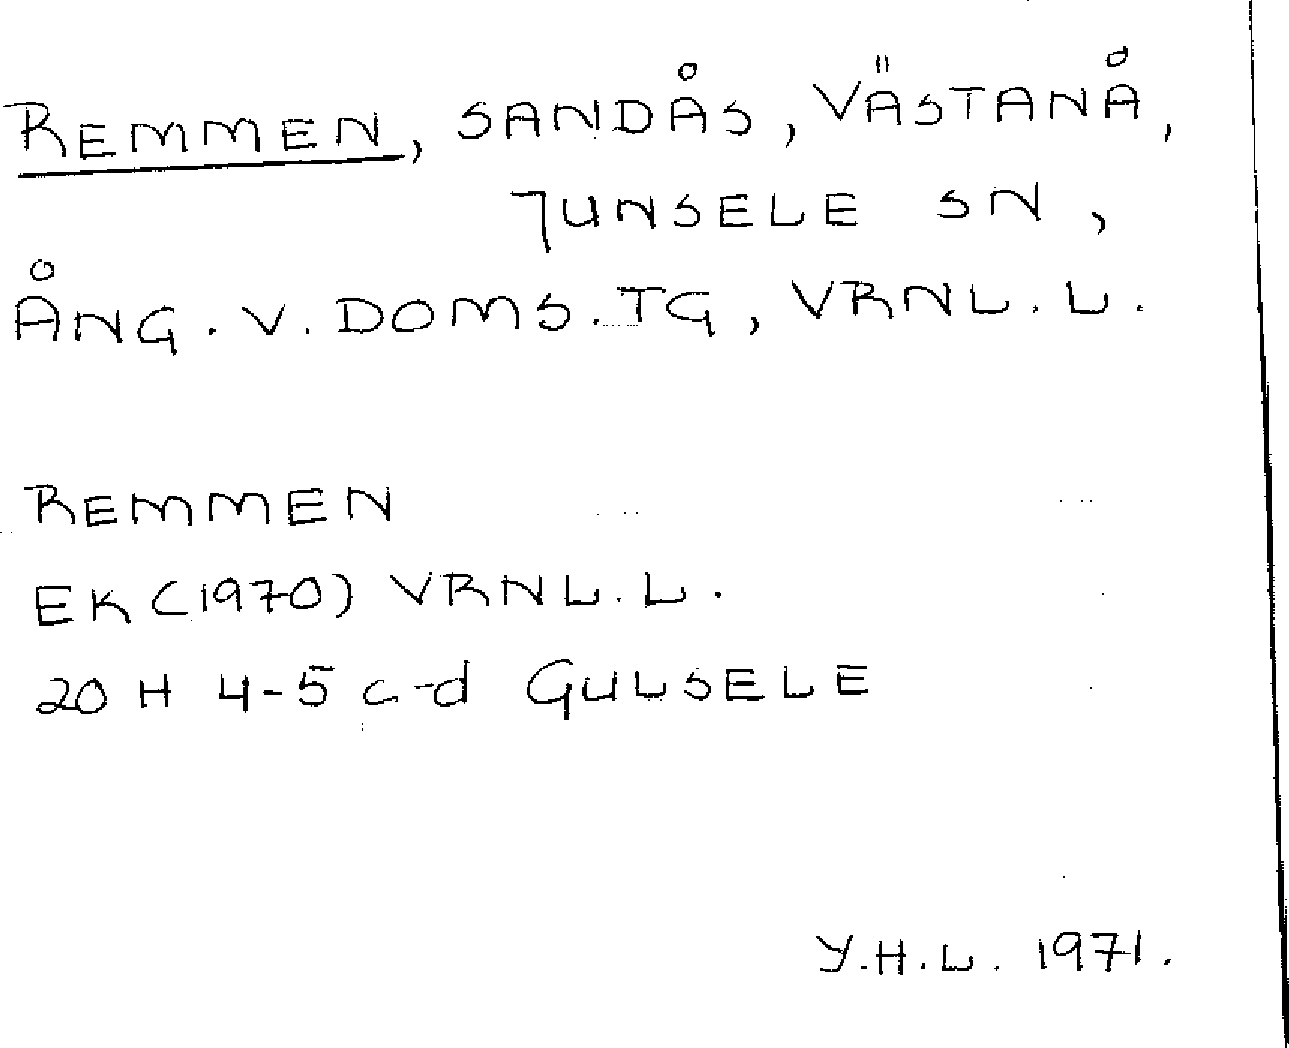 REMMEN, SANDÅS, VÄSTANÅ,
JUNSELE SN,
ÅNG. V. DOMS. TG, VRNL. L.
REMMEN
EK (1970) VRNL. L.
20 H 4-5 c-d GULSELE
Y.H.L. 1971.